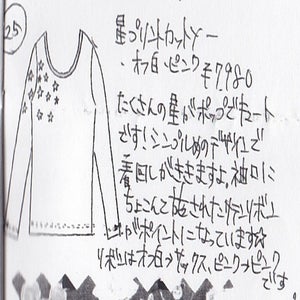 25
星プリントカットソー
・オフ白・ピンク ¥7,980
たくさんの星がポップでキュート
です!シンプルめのデザインで
着回しがききますよ。袖口に
ちょこんと
リボン
がポイントになっています☆
リボンはオフ白→サックス、ピンク→ピンク
です